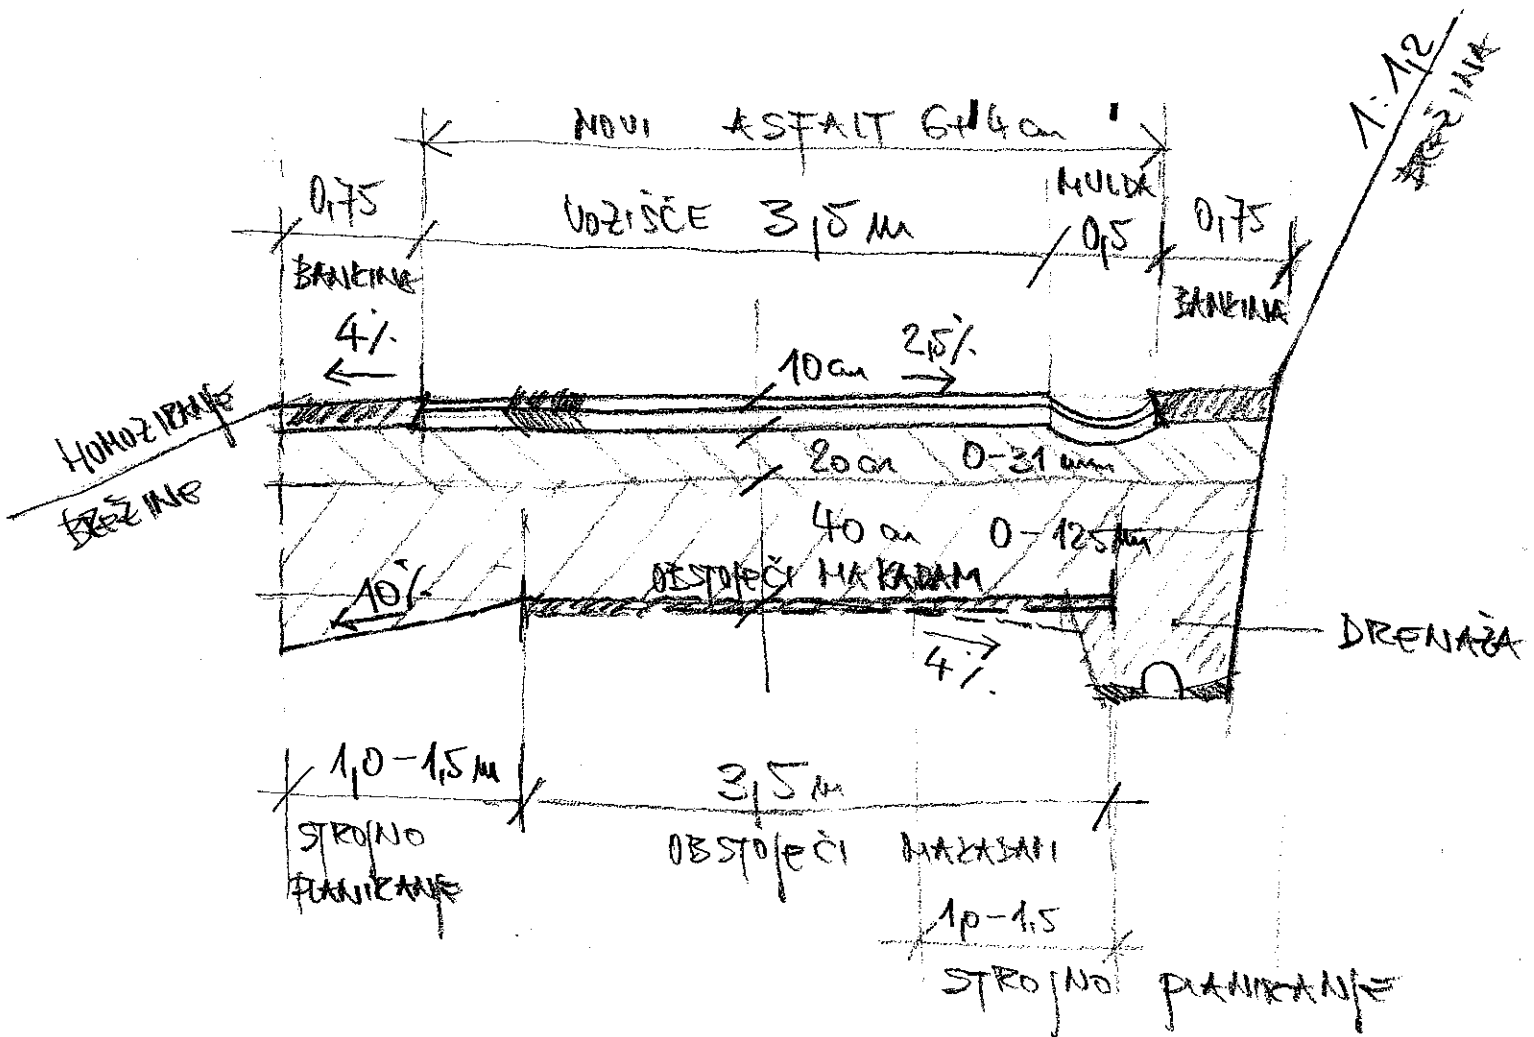 NOVI ASFALT 6+4 cm
1:1,2
BREŽINA
MULDA
0,75
VOZIŠČE 3,5 m
0,5
0,75
BANKINA
BANKINA
4%
2,5%
10 cm
HUMOZIRANJE
BREŽINE
20 cm 0-31 mm
40 cm 0-125 mm
OBSTOJEČI MAKADAM
10%
4%
DRENAŽA
1,0-1,5 m
3,5 m
STROJNO
PLANIRANJE
OBSTOJEČI MAKADAM
1,0-1,5
STROJNO PLANIRANJE